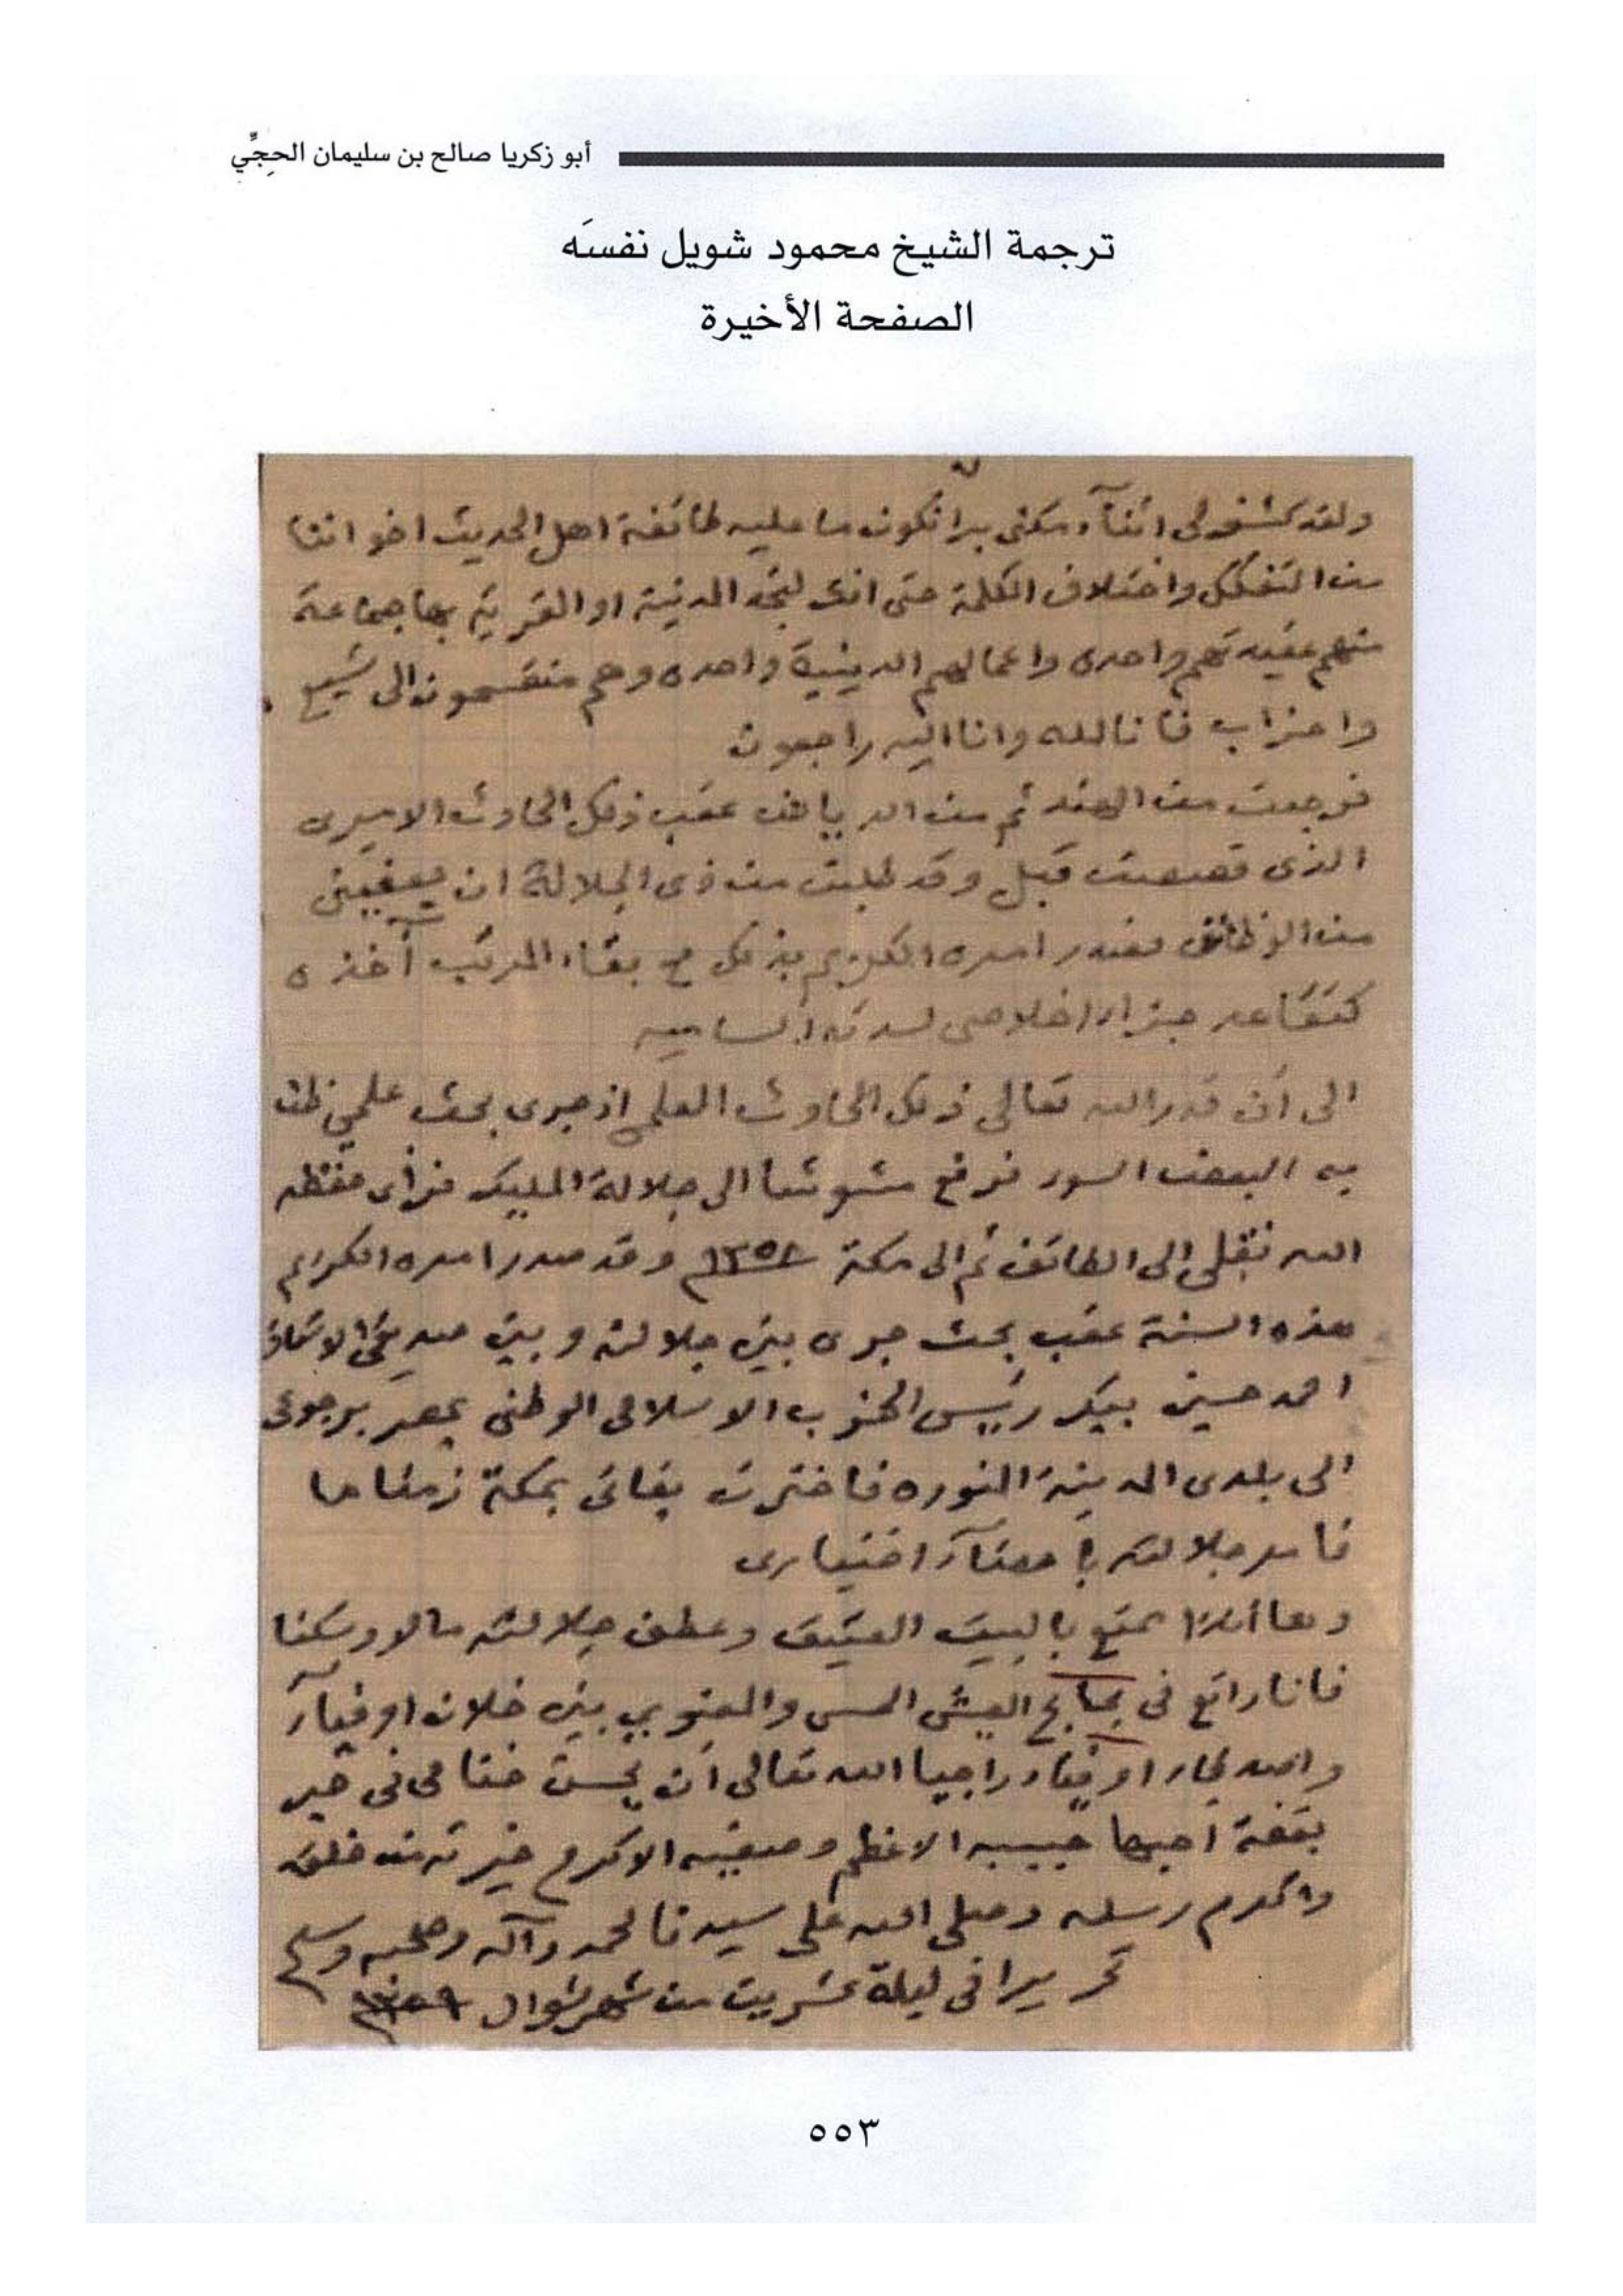 أبو زكريا صالح بن سليمان الحجِّي
ترجمة الشيخ محمود شويل نفسَه
الصفحة الأخيرة
ولقد كشف لى اثنآء سكنى برانكون ما عليه طائفة اهل الحديث اخواننا
من التفكك واختلاف الكلمة حتى انك لتجد المدينة او القرية بها جماعة
منهم عقيدتهم واحدة واعمالهم الدينية واحده وهم منقسمون الى شيع
واحزاب فانا لله وانا اليه راجعون
فرجعت من الهند ثم من الرياض عقب ذلك الحادث الاميرى
الذى قصصت قبل وقد طلبت من ذى الجلالة ان يعفينى
من الوظائف فصدر امره الكريم بذلك مع بقاء المرتب آخذه
كتقاعد جزاء اخلاصى لسدته الساميه
الى أن قدر الله تعالى ذلك الحادث العلمى إذ جرى بحث علمي ظن
به البعض السوء فرفع مشوشا الى جلالة المليك فرأى حفظه
الله نقلى الى الطائف ثم الى مكة ١٣٥٨ وقد صدر امره الكريم
هذه السنة عقب بحث جرى بين جلالته وبين صديقى الاستاذ
احمد حسين بيك رييس الحزب الاسلامى الوطنى بمصر برجوعى
الى بلدى المدينة المنوره فاخترت بقائى بمكة زمنا ما
فامر جلالته بإمضآء اختيارى
وها أناذا ممتع بالبيت العتيق وعطف جلالته مالا وسكنا
فانا راتع فى بحابح العيش الحسى والمعنوي بين خلان اوفيآء
واصدقاء اوفياء راجيا الله تعالى أن يحسن ختامى فى خير
بقعة احبها حبيبه الاعظم وصفيه الاكرم خيرته من خلقه
واكرم رسله وصلى الله على سيدنا محمد وآله وصحبه وسلم
تحريرا فى ليلة عشرين من شهر شوال ١٣٥٩
٥٥٣